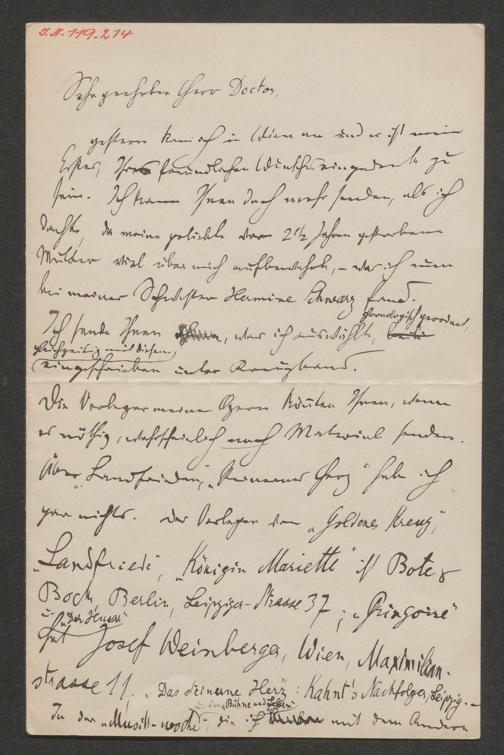 I.N. 119.214
Sehr geehrter Herr Doctor,
gestern kam ich in Wien an und es ist mein
Erstes, Ihres freundlichen Wunsches eingedenk zu
sein. Ich kann Ihnen doch mehr senden, als ich
dachte, da meine geliebte vor 2 1/2 Jahren gestorbene
Mutter viel über mich aufbewahrt, – was ich nun
bei meiner Schwester Hermine Schwarz fand.
Ich sende Ihnen, was ich auswählte, chronologisch geordnet,
gleichzeitig mit diesem,
eingeschrieben unter Kreuzband.
Die Verleger meiner Opern könnten Ihnen, wenn
es nöthig, wahrscheinlich noch Material senden.
Über "Landfrieden", "Steinernes Herz" hab ich
gar nichts. Der Verleger von "Goldenes Kreuz",
"Landfriede", "Königin Mariette" ist Bote &
Bock, Berlin, Leipziger-Strasse 37; "Gringoire"
u. "Der Husar"
hat Josef Weinberger, Wien, Maximilian-
strasse 11. "Das steinerne Herz": Kahnt's Nachfolger, Leipzig. –
"Bühne und
In der "Musik-woche", die ich mit dem Andern